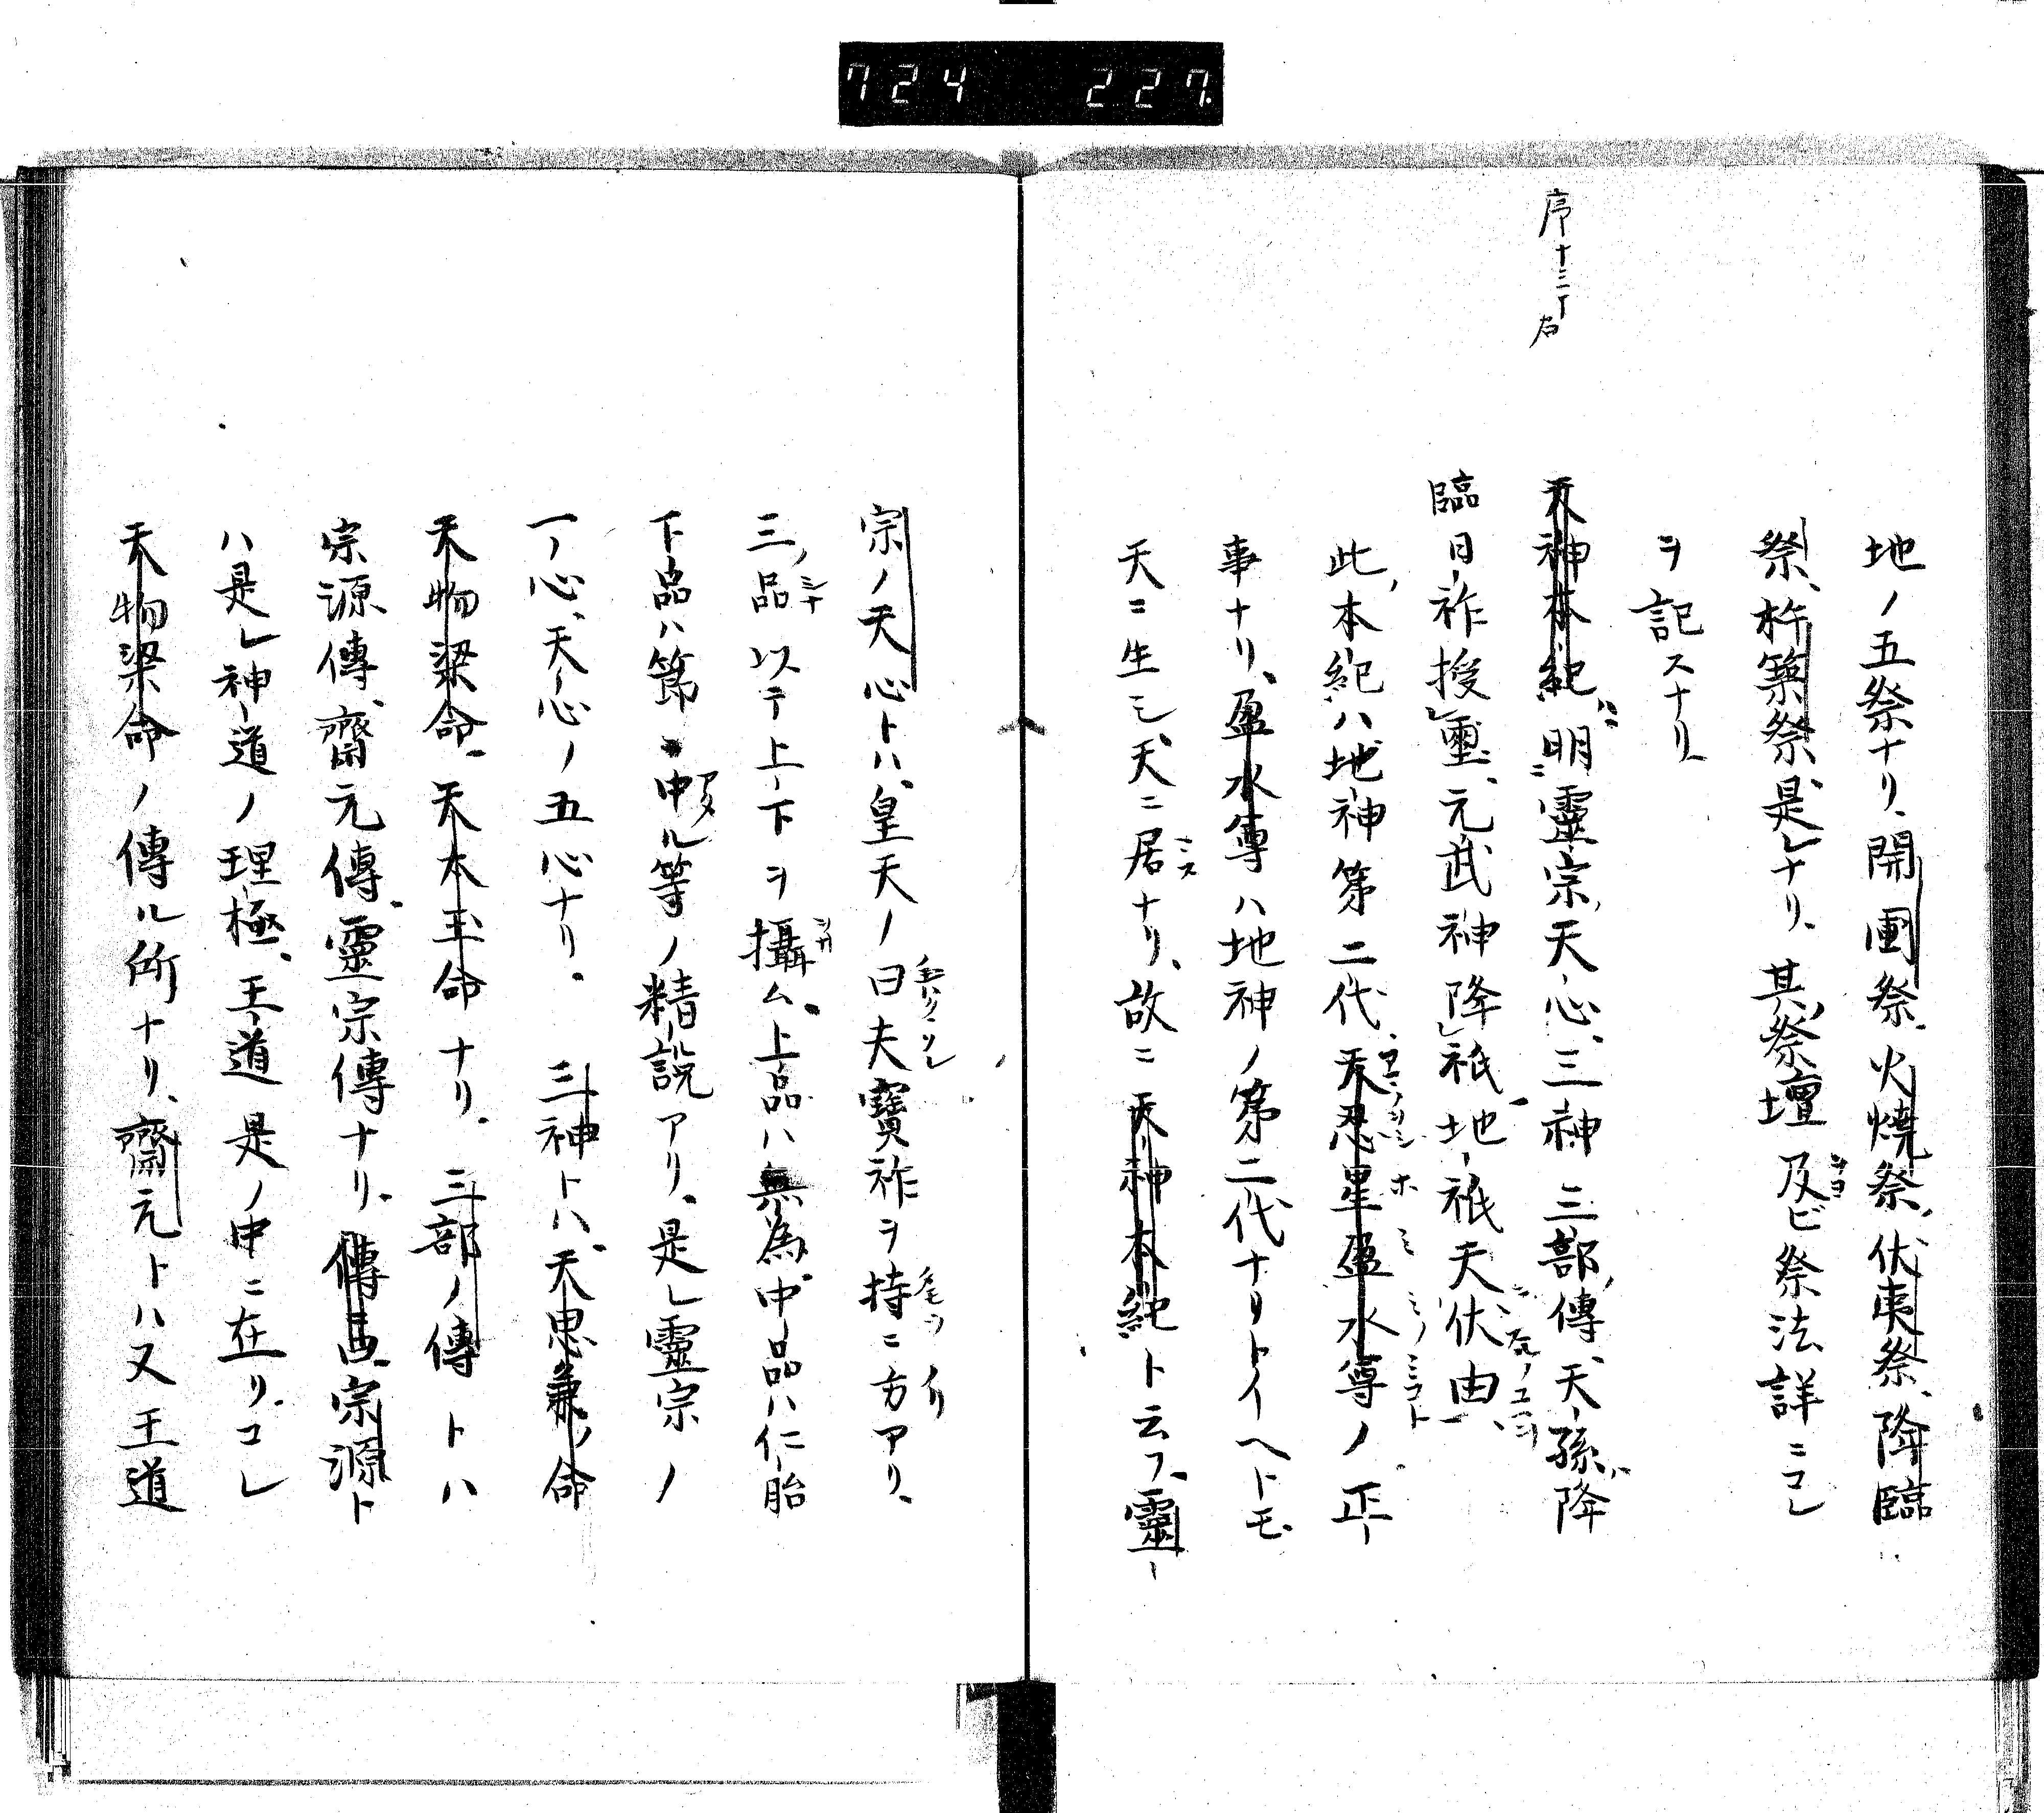 724 227
序十三丁右
地ノ五祭ナリ、開圕祭、火焼祭、伏夷祭、降臨
祭、杵築祭、是レナリ、其ノ祭壇及ビ祭法詳ニコレ
ヲ記スナリ
天神本紀ニ明靈宗、天心、三神、三部ノ傳、天孫降
臨日祚授璽、元武神降祇地祇天伏由、
此ノ本紀ハ地神第二代、天忍星盈水尊ノ正
事ナリ、盈水尊ハ地神ノ第二代ナリトイヘトモ
天ニ生シ天ニ居ナリ、故ニ天神本紀ト云フ、靈
宗ノ天心トハ、皇天ノ曰夫寶祚ヲ持ニ方アリ、
三ノ品以テ上下ヲ攝ム、上品ハ無為中品ハ仁胎
下品ハ節ニ中ル等ノ精説アリ、是レ靈宗ノ
一ノ心、天心ノ五心ナリ。三神トハ、天思兼ノ命
天物梁命、天太玉命ナリ、三部ノ傳トハ
宗源傳、齋元傳、靈宗傳ナリ、宗源ト
ハ是レ神道ノ理極、王道是ノ中ニ在リ、コレ
天物梁命ノ傳ル所ナリ、齋元トハ又王道